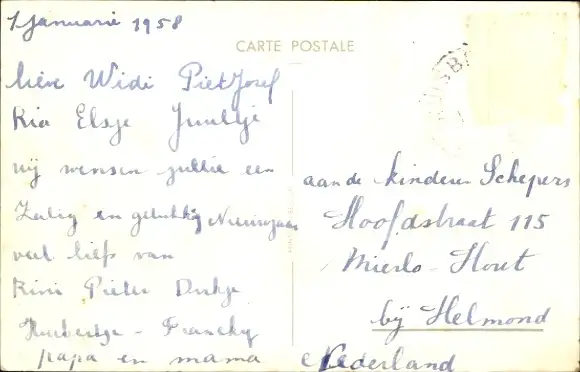 1 Januarie 1958
CARTE POSTALE
lieve Widi Piet Josef
Ria Elsje
wij wensen jullie een
Zalig en gelukkig Nieuwjaar
veel liefs van
Rini Pieter Dirkje
Huibertje - Francky
papa en mama
aan de kinderen Schepers
Hoofdstraat 115
Mierlo - Hout
bij Helmond
Nederland